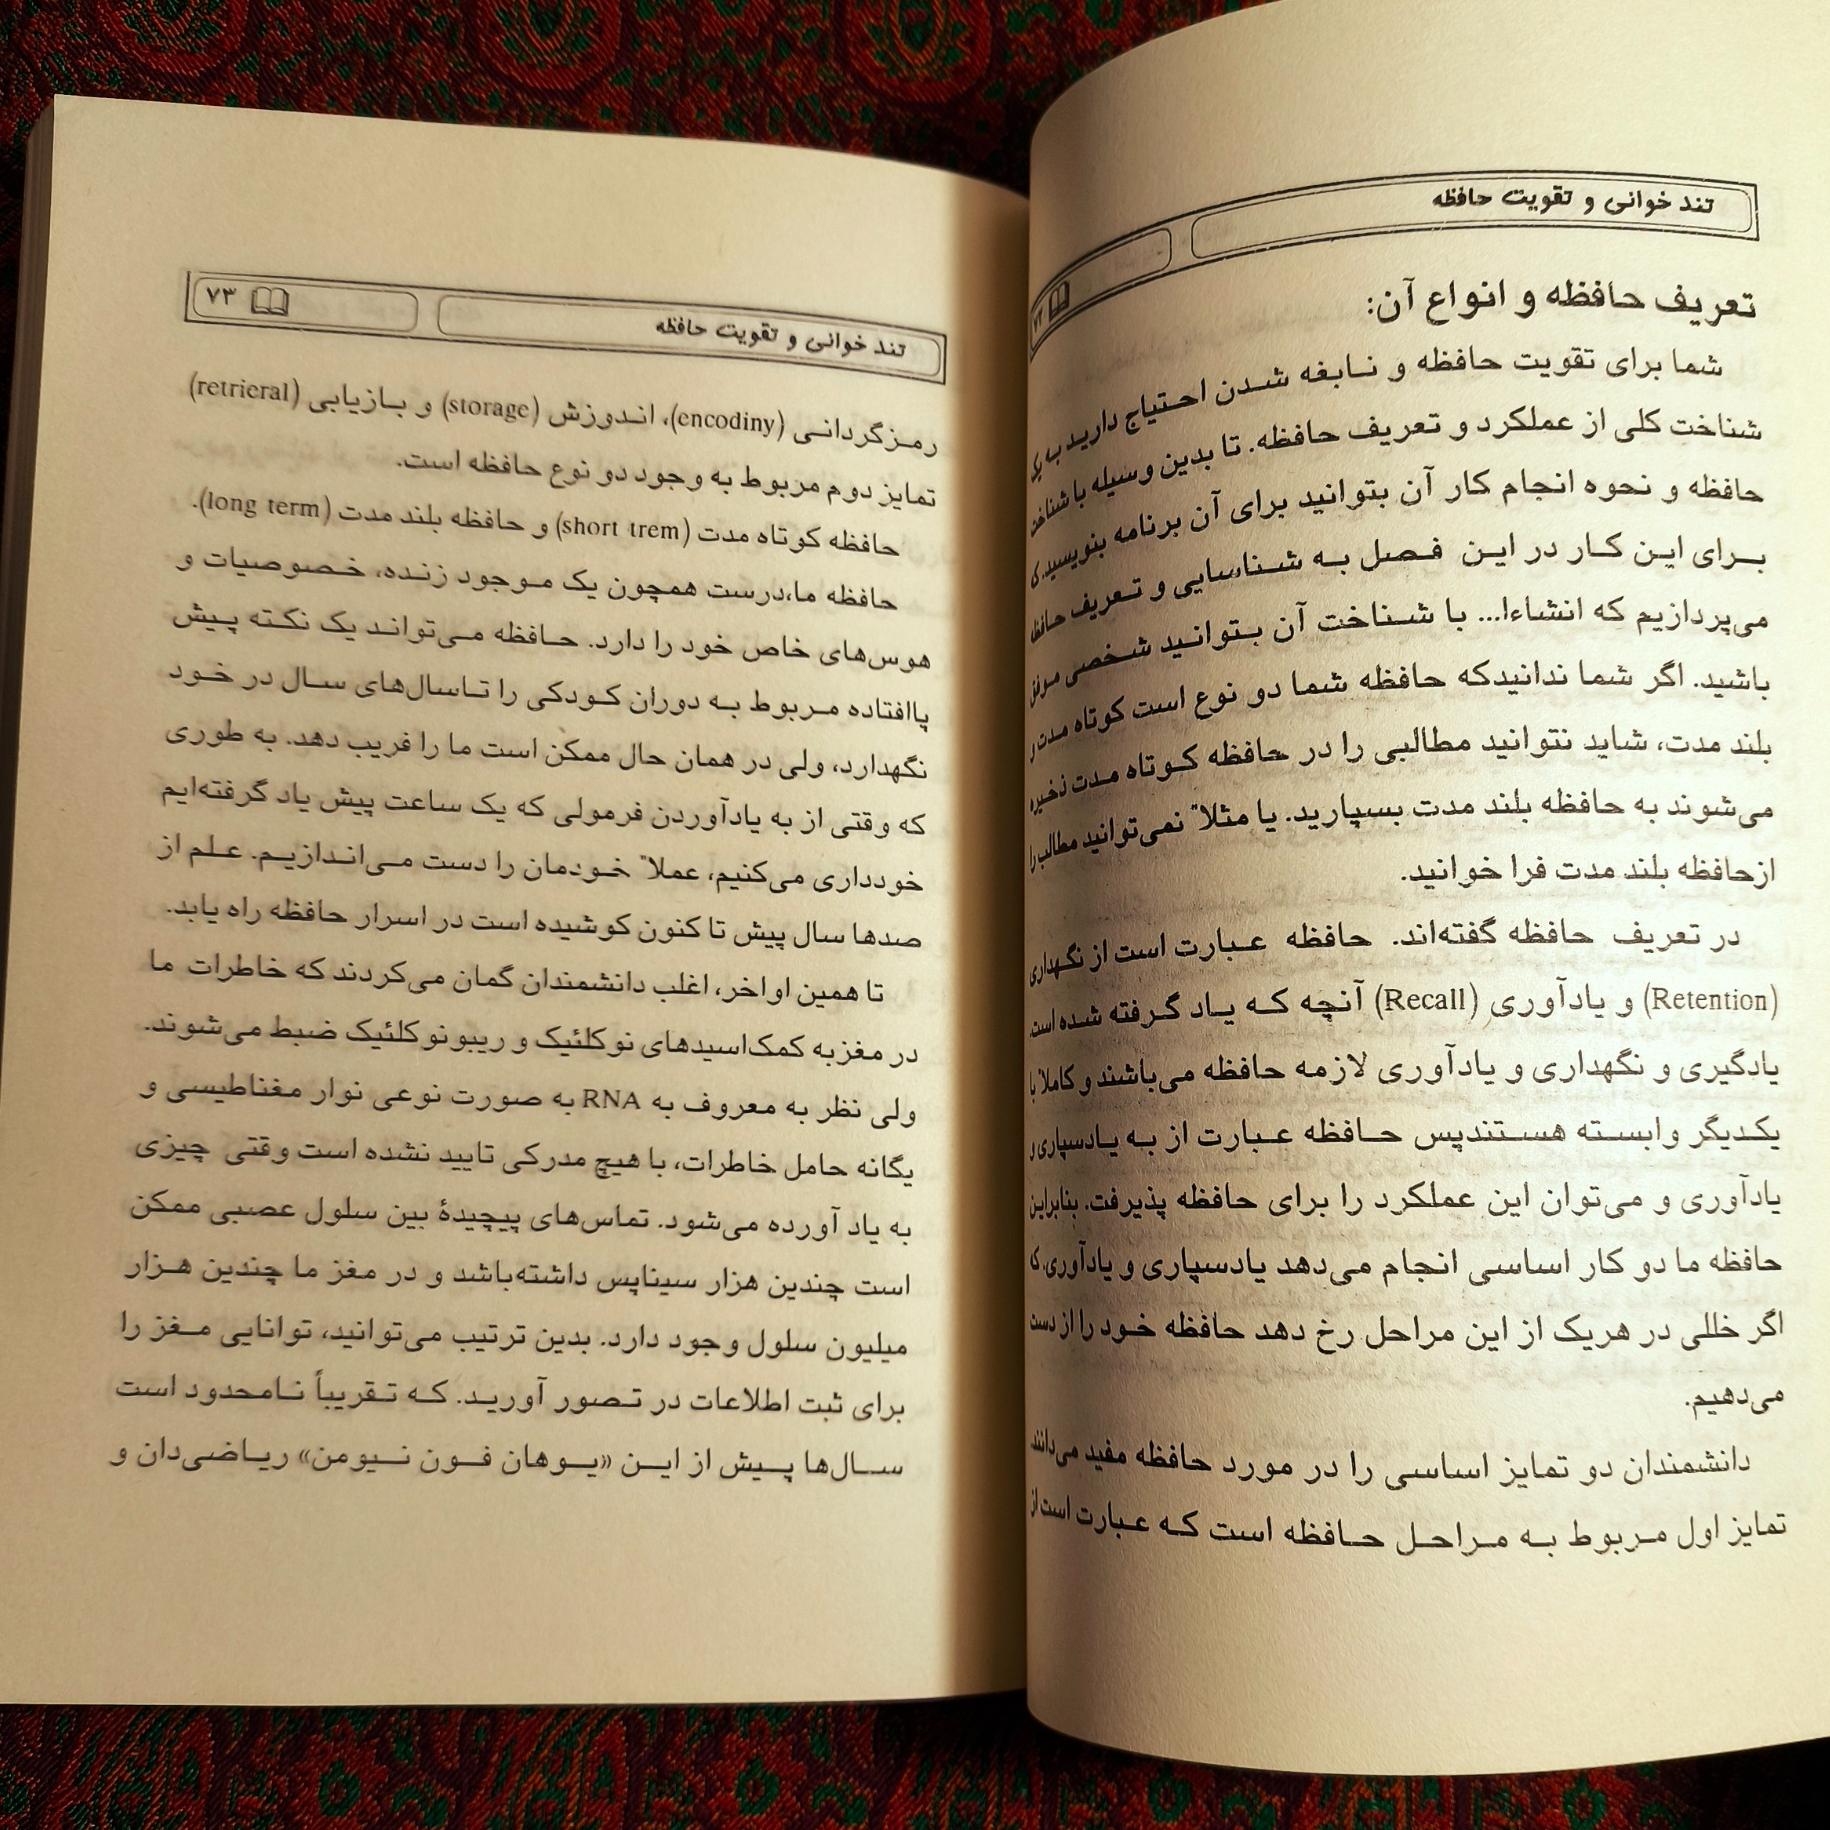 تند خوانی و تقویت حافظه
۷۲
تعریف حافظه و انواع آن:
شما برای تقویت حافظه و نابغه شدن احتیاج دارید به یک
شناخت کلی از عملکرد و تعریف حافظه. تا بدین وسیله با شناخت
حافظه و نحوه انجام کار آن بتوانید برای آن برنامه بنویسید. که
برای این کار در این فصل به شناسایی و تعریف حافظه
می‌پردازیم که انشاءا... با شناخت آن بتوانید شخصی موفق
باشید. اگر شما ندانیدکه حافظه شما دو نوع است کوتاه مدت و
بلند مدت، شاید نتوانید مطالبی را در حافظه کوتاه مدت ذخیره
می‌شوند به حافظه بلند مدت بسپارید. یا مثلاً نمی‌توانید مطالب را
ازحافظه بلند مدت فرا خوانید.
در تعریف حافظه گفته‌اند. حافظه عبارت است از نگهداری
(Retention) و یادآوری (Recall) آنچه که یاد گرفته شده است.
یادگیری و نگهداری و یادآوری لازمه حافظه می‌باشند و کاملاً با
یکدیگر وابسته هستندپس حافظه عبارت از به یادسپاری و
یادآوری و می‌توان این عملکرد را برای حافظه پذیرفت. بنابراین
حافظه ما دو کار اساسی انجام می‌دهد یادسپاری و یادآوری. که
اگر خللی در هریک از این مراحل رخ دهد حافظه خود را از دست
می‌دهیم.
دانشمندان دو تمایز اساسی را در مورد حافظه مفید می‌دانند.
تمایز اول مربوط به مراحل حافظه است که عبارت است از
تند خوانی و تقویت حافظه
۷۳
رمزگردانی (encodiny)، اندوزش (storage) و بازیابی (retrieral)
تمایز دوم مربوط به وجود دو نوع حافظه است.
حافظه کوتاه مدت (short trem) و حافظه بلند مدت (long term).
حافظه ما،درست همچون یک موجود زنده، خصوصیات و
هوس‌های خاص خود را دارد. حافظه می‌تواند یک نکته پیش
پاافتاده مربوط به دوران کودکی را تاسال‌های سال در خود
نگهدارد، ولی در همان حال ممکن است ما را فریب دهد. به طوری
که وقتی از به یادآوردن فرمولی که یک ساعت پیش یاد گرفته‌ایم
خودداری می‌کنیم، عملاً خودمان را دست می‌اندازیم. علم از
صدها سال پیش تا کنون کوشیده است در اسرار حافظه راه یابد.
تا همین اواخر، اغلب دانشمندان گمان می‌کردند که خاطرات ما
در مغزبه کمک‌اسیدهای نوکلئیک و ریبونوکلئیک ضبط می‌شوند.
ولی نظر به معروف به RNA به صورت نوعی نوار مغناطیسی و
یگانه حامل خاطرات، با هیچ مدرکی تایید نشده است وقتی چیزی
به یاد آورده می‌شود. تماس‌های پیچیدهٔ بین سلول عصبی ممکن
است چندین هزار سیناپس داشته‌باشد و در مغز ما چندین هزار
میلیون سلول وجود دارد. بدین ترتیب می‌توانید، توانایی مغز را
برای ثبت اطلاعات در تصور آورید. که تقریباً نامحدود است
سال‌ها پیش از این «یوهان فون نیومن» ریاضی‌دان و